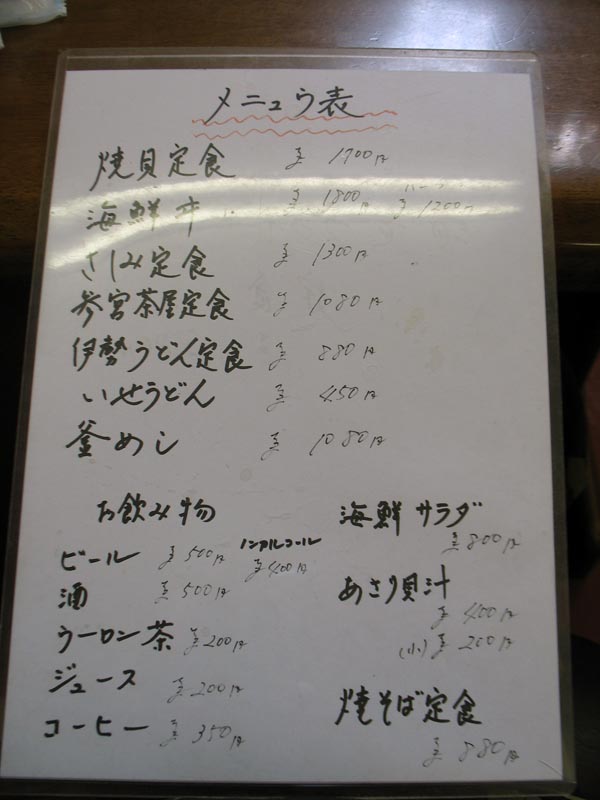 メニュウ表
焼貝定食 ¥1700円
海鮮丼 ¥1800円 ¥1200円
さしみ定食 ¥1300円
参宮茶屋定食 ¥1080円
伊勢うどん定食 ¥880円
いせうどん ¥450円
釜めし ¥1080円
お飲み物
ビール ¥500円 ノンアルコール ¥400円
酒 ¥500円
ウーロン茶 ¥200円
ジュース ¥200円
コーヒー ¥350円
海鮮サラダ
¥800円
あさり貝汁
¥400円
(小) ¥200円
焼そば定食
¥880円